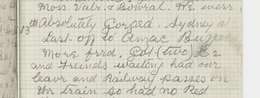 Moss Vale & Bowral. We were
13th Absolutely Gorged. Sydney at
last. off to Anzac Buffet
More food. Got (two) £2
and Friends waiting had our
leave and Railway passes on
the train so had no Red